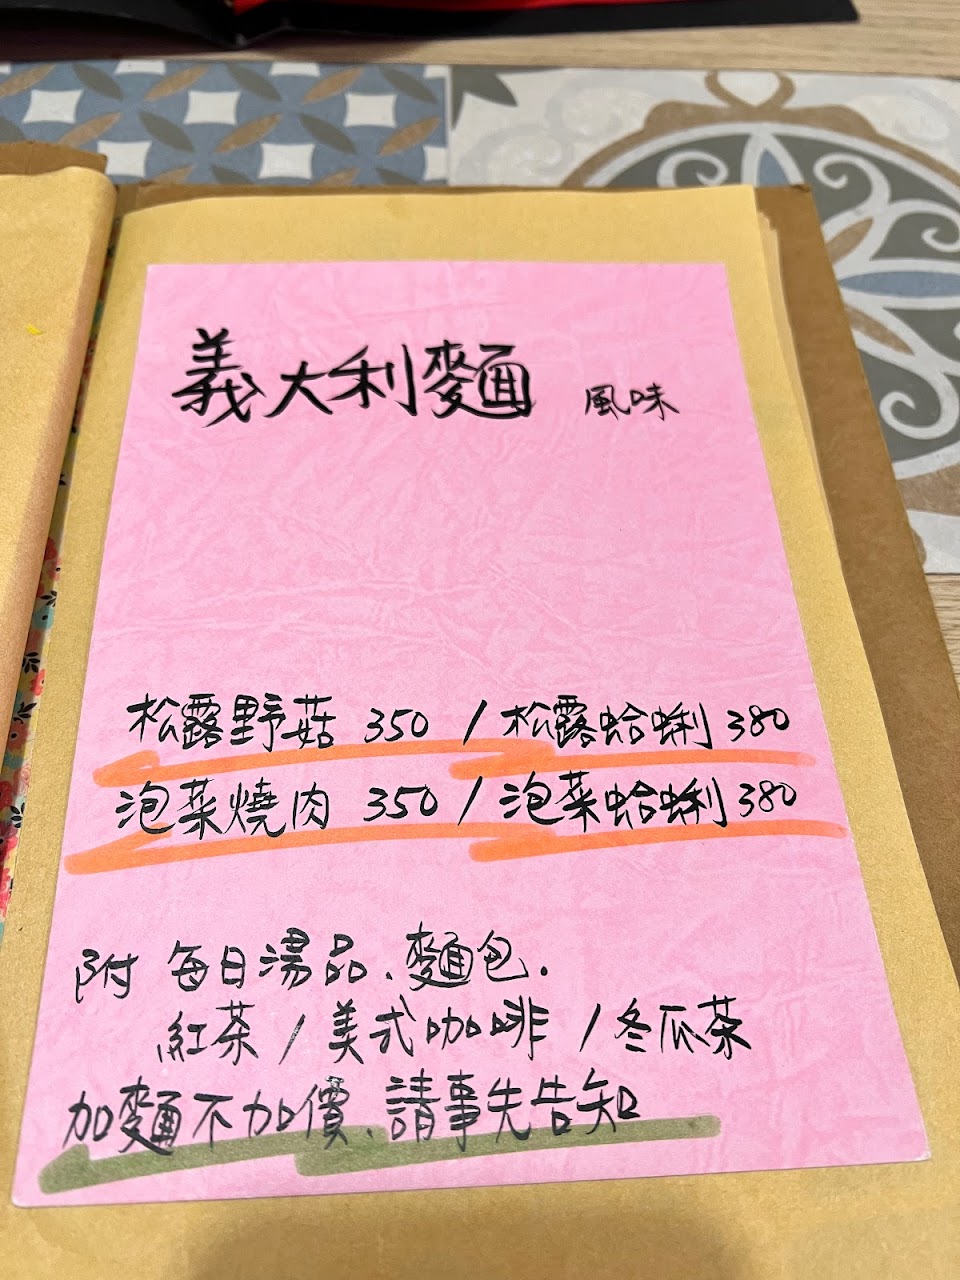 義大利麵 風味
松露野菇 350 / 松露蛤蜊 380
泡菜燒肉 350 / 泡菜蛤蜊 380
附 每日湯品、麵包.
紅茶 / 美式咖啡 / 冬瓜茶
加麵不加價、請事先告知